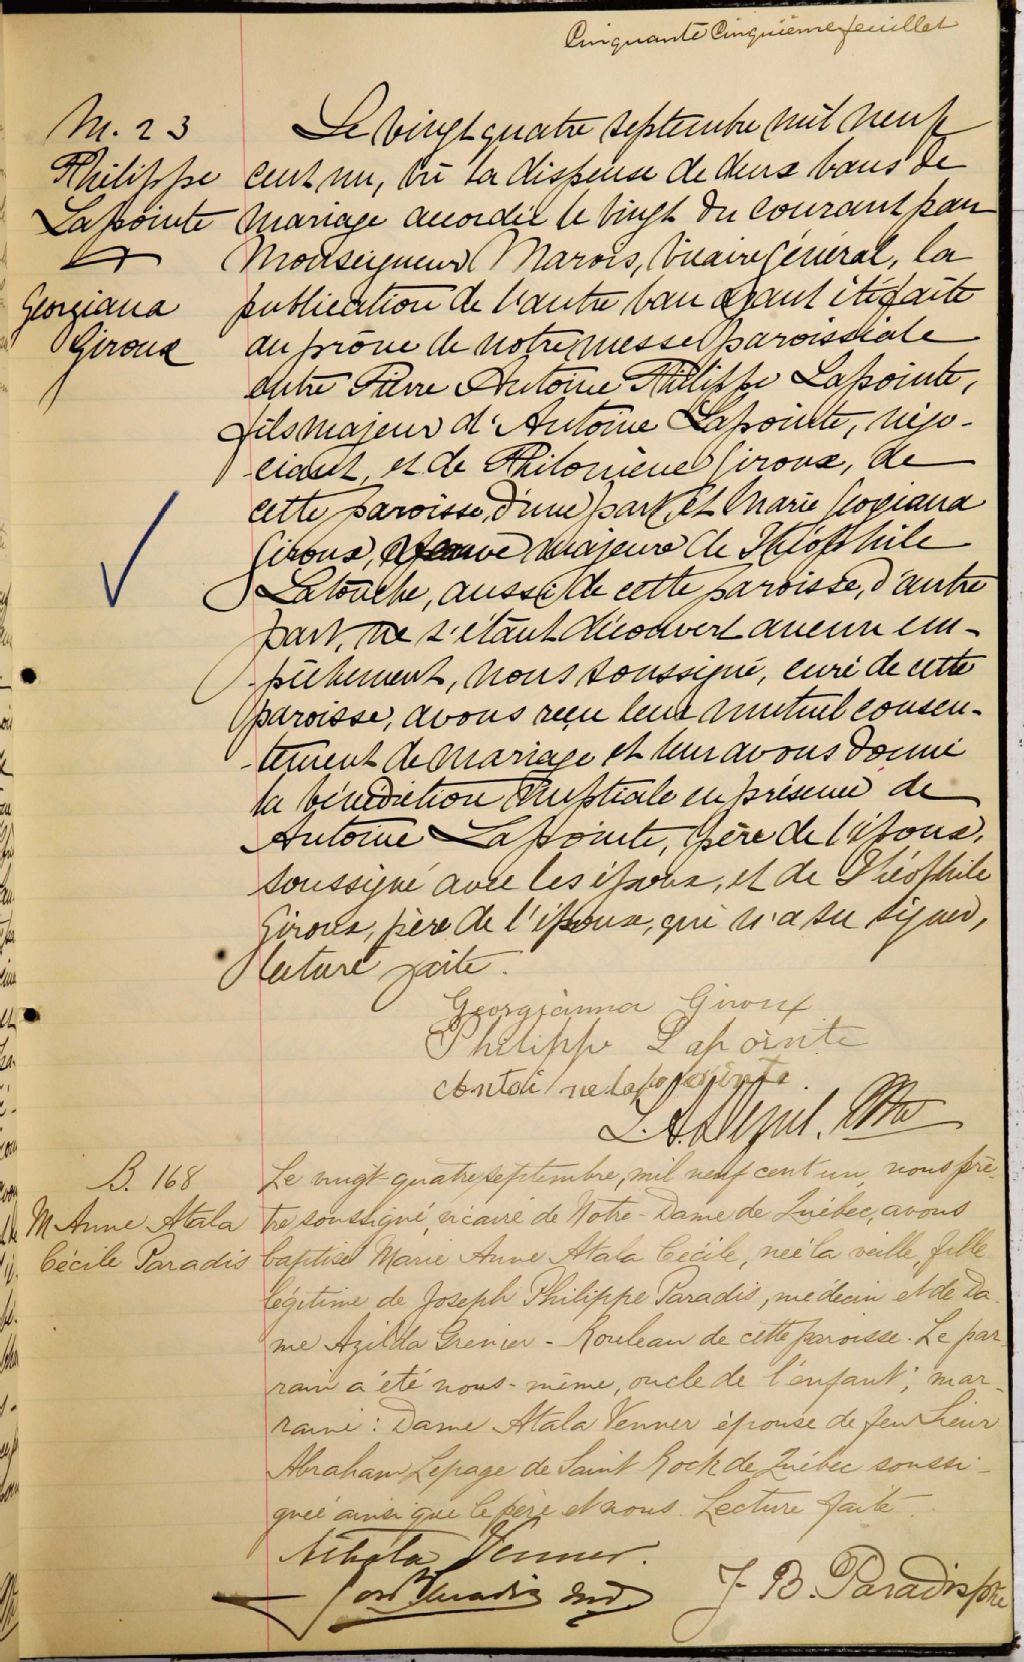 Cinquante Cinquième feuillet
M. 23
Philippe
Lapointe
&
Georgiana
Giroux
Le vingt quatre septembre mil neuf
cent un, vu la dispense de deux bans de
mariage accordée le vingt du courant par
Monseigneur Marois, Vicaire Général, la
publication de l'autre ban ayant été faite
au prône de notre messe paroissiale
entre Pierre Antoine Philippe Lapointe,
fils majeur d'Antoine Lapointe, négo-
ciant, et de Philomène Giroux, de
cette paroisse, d'une part, et Marie Geogiana
Giroux, veuve majeure de Théophile
Latouche, aussi de cette paroisse, d'autre
part, ne s'étant découvert aucun em-
pêchement, nous soussigné, curé de cette
paroisse, avons reçu leur mutuel consen-
tement de mariage et leur avons donné
la bénédiction nuptiale en présence de
Antoine Lapointe, père de l'époux,
soussigné avec les époux, et de Théophile
Giroux, père de l'épouse, qui n'a su signer,
lecture faite.
Georgianna Giroux
Philippe Lapointe
Antoi ne Lapointe
B. 168
M Anne Atala
Cécile Paradis
Le vingt-quatre septembre, mil neuf cent un, nous prê-
tre soussigné, vicaire de Notre-Dame de Québec, avons
baptisé Marie Anne Atala Cécile, née la veille, fille
légitime de Joseph Philippe Paradis, médecin et de Da-
me Azilda Grenier - Rouleau de cette paroisse. Le par-
rain a été nous-même, oncle de l'enfant; mar-
raine: Dame Atala Venner épouse de feu Sieur
Abraham Lepage de Saint Rock de Québec soussi-
gnée ainsi que le père et nous. Lecture faite.
Athala Venner.
Jos P Paradis md
J. B. Paradis ptre